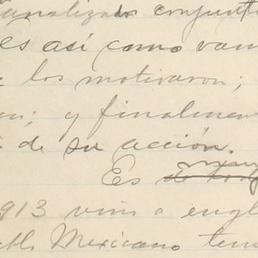 analizado conjunta
es así como van
los motivaron;
en; y finalmen
de su acción.
Es
1913 vino a engl
Mexicano ten